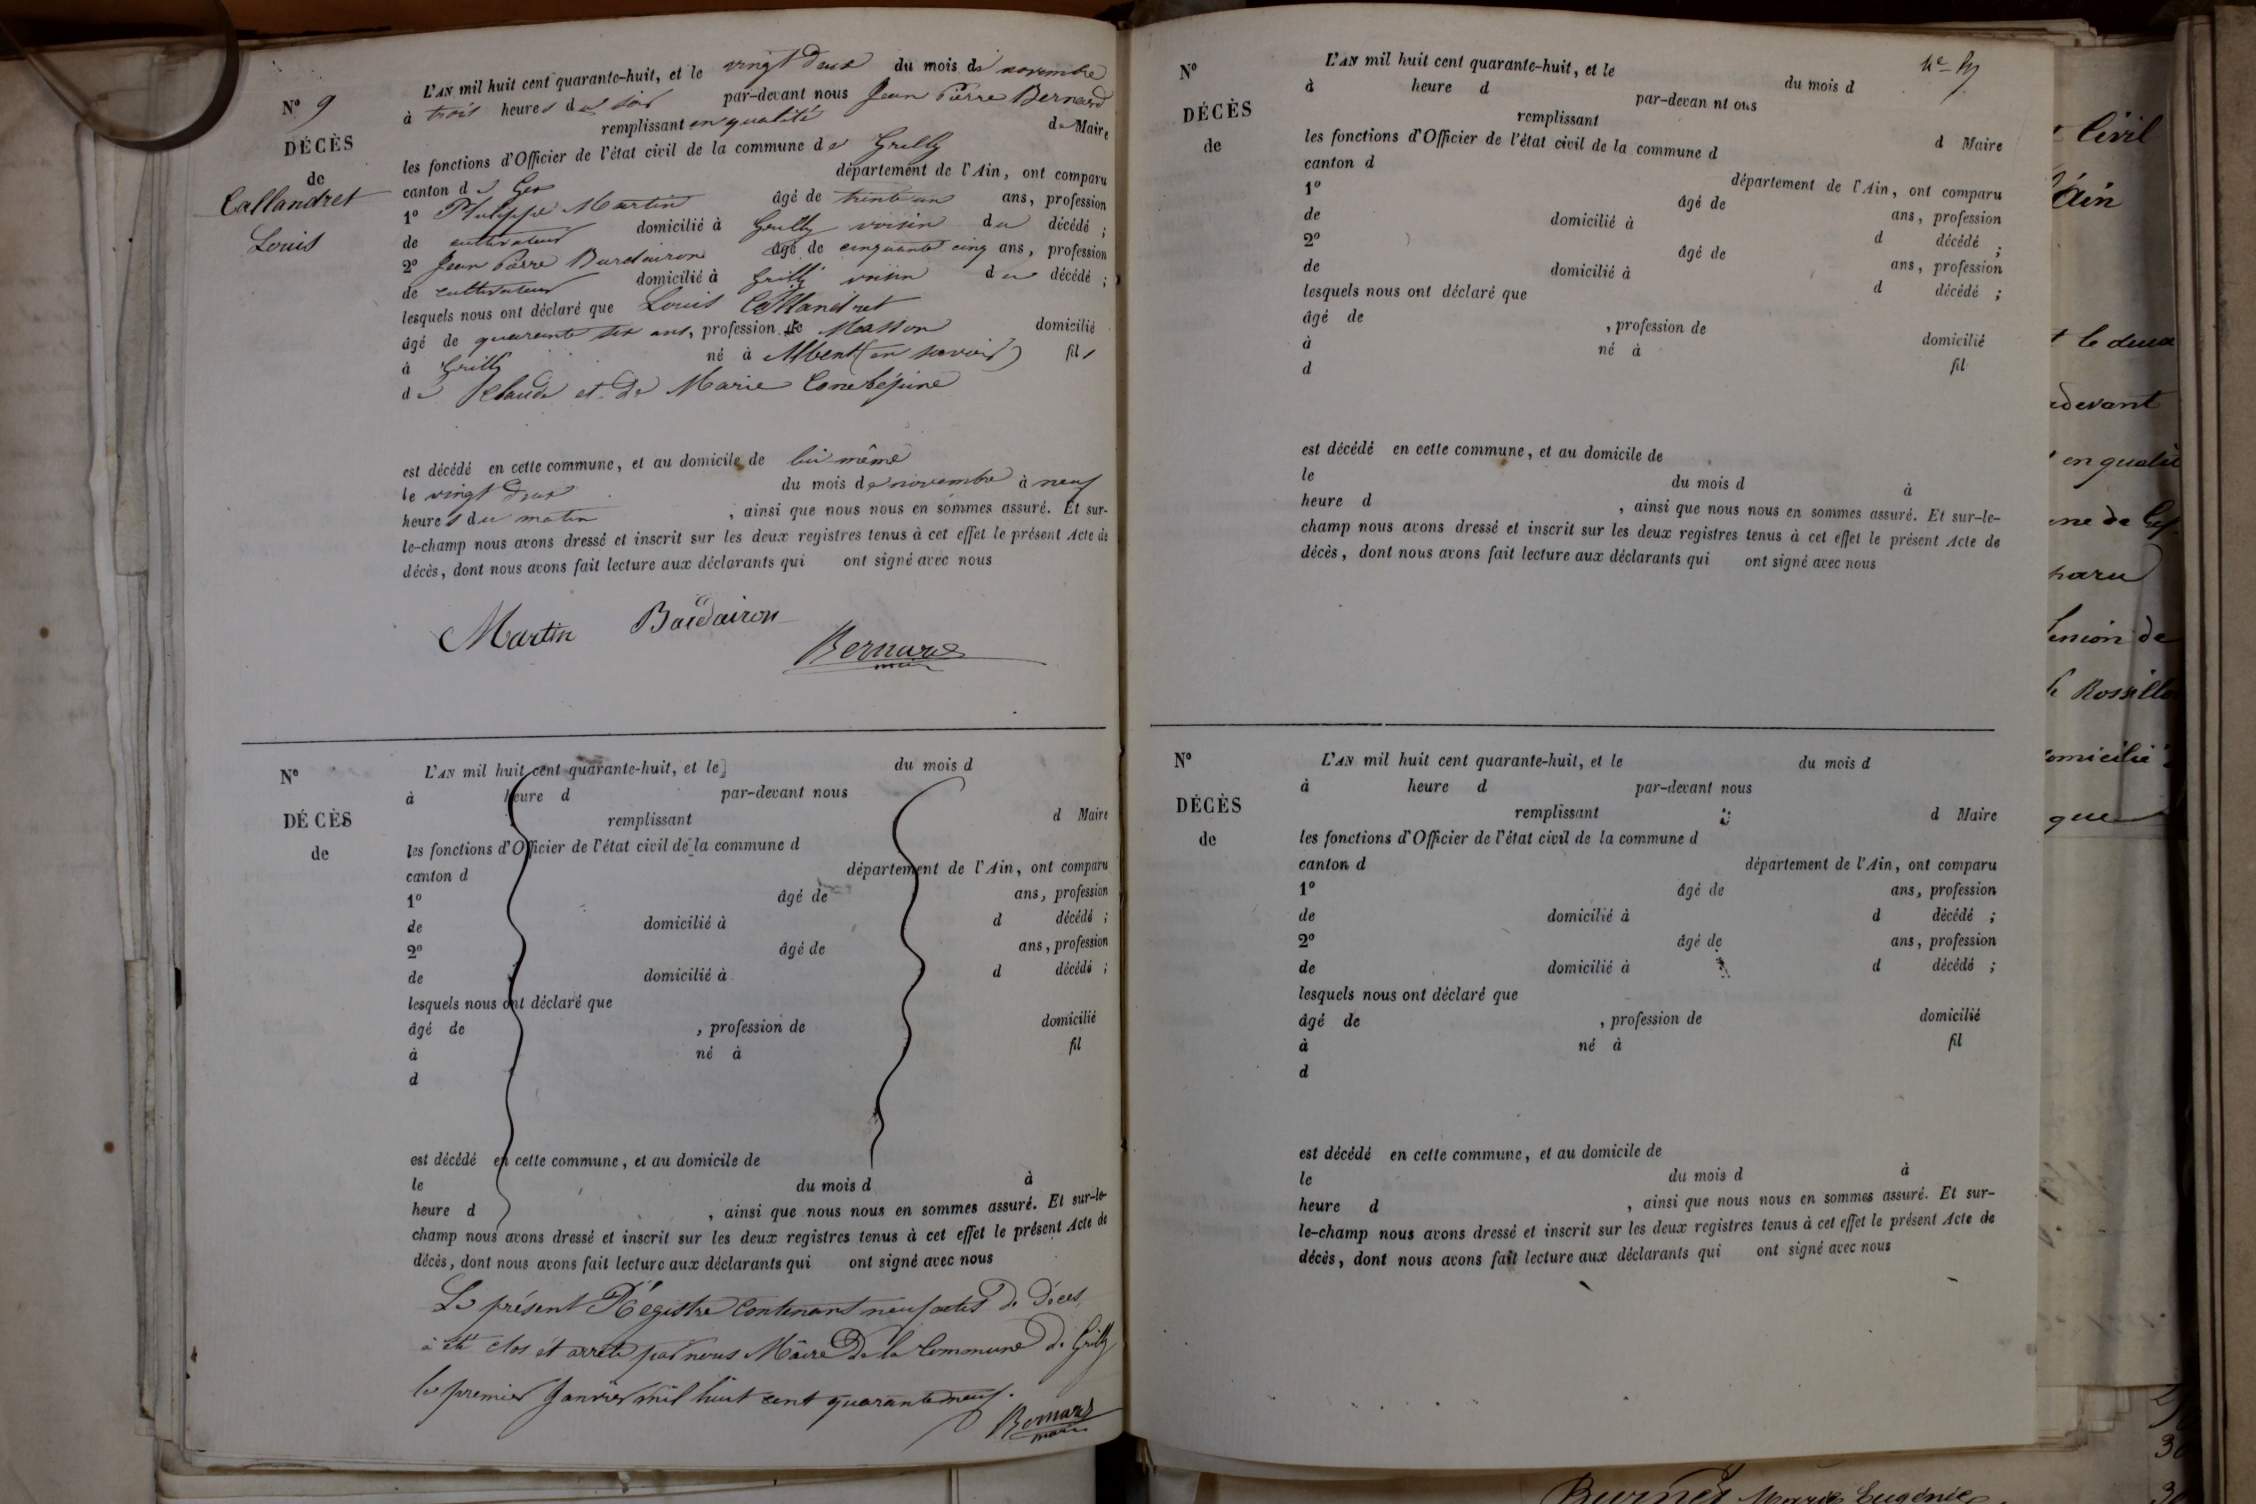 N° 9
DÉCÈS
de
Callandret
Louis
L'AN mil huit cent quarante-huit, et le vingt deux du mois de novembre
à trois heures du soir par-devant nous Jean Pierre Bernard
remplissant en qualité de Maire
les fonctions d'Officier de l'état civil de la commune de Grilly
canton de Gex département de l'Ain, ont comparu
1° Philippe Martin âgé de trente un ans, profession
de cultivateur domicilié à Grilly voisin du décédé ;
2° Jean Pierre Bardairon âgé de cinquante cinq ans, profession
de cultivateur domicilié à Grilly voisin du décédé ;
lesquels nous ont déclaré que Louis Callandret
âgé de quarante six ans, profession de Masson domicilié
à Grilly né à (en savoie) fils
de Claude et de Marie
est décédé en cette commune, et au domicile de lui même
le vingt deux du mois de novembre à neuf
heures du matin , ainsi que nous nous en sommes assuré. Et sur-
le-champ nous avons dressé et inscrit sur les deux registres tenus à cet effet le présent Acte de
décès, dont nous avons fait lecture aux déclarants qui ont signé avec nous
Martin Bardairon
Bernard
maire
N°
DÉCÈS
de
L'AN mil huit cent quarante-huit, et le du mois d
à heure d par-devant nous
remplissant d Maire
les fonctions d'Officier de l'état civil de la commune d
canton d département de l'Ain, ont comparu
1° âgé de ans, profession
de domicilié à d décédé ;
2° âgé de ans, profession
de domicilié à d décédé ;
lesquels nous ont déclaré que
âgé de , profession de domicilié
à né à fil
d
est décédé en cette commune, et au domicile de
le du mois d à
heure d , ainsi que nous nous en sommes assuré. Et sur-le-
champ nous avons dressé et inscrit sur les deux registres tenus à cet effet le présent Acte de
décès, dont nous avons fait lecture aux déclarants qui ont signé avec nous
Le présent Régistre contenant neuf actes de déces,
à été clos et arrêté par nous Maire de la Commune de Grilly
le premier Janvier mil huit cent quarante neuf.
Bernard
maire
N°
DÉCÈS
de
L'AN mil huit cent quarante-huit, et le du mois d
à heure d par-devan nt ous
remplissant d Maire
les fonctions d'Officier de l'état civil de la commune d
canton d département de l'Ain, ont comparu
1° âgé de ans, profession
de domicilié à d décédé ;
2° âgé de ans, profession
de domicilié à d décédé ;
lesquels nous ont déclaré que
âgé de , profession de domicilié
à né à fil
d
est décédé en cette commune, et au domicile de
le du mois d à
heure d , ainsi que nous nous en sommes assuré. Et sur-le-
champ nous avons dressé et inscrit sur les deux registres tenus à cet effet le présent Acte de
décès, dont nous avons fait lecture aux déclarants qui ont signé avec nous
N°
DÉCÈS
de
L'AN mil huit cent quarante-huit, et le du mois d
à heure d par-devant nous
remplissant d Maire
les fonctions d'Officier de l'état civil de la commune d
canton d département de l'Ain, ont comparu
1° âgé de ans, profession
de domicilié à d décédé ;
2° âgé de ans, profession
de domicilié à d décédé ;
lesquels nous ont déclaré que
âgé de , profession de domicilié
à né à fil
d
est décédé en cette commune, et au domicile de
le du mois d à
heure d , ainsi que nous nous en sommes assuré. Et sur-
le-champ nous avons dressé et inscrit sur les deux registres tenus à cet effet le présent Acte de
décès, dont nous avons fait lecture aux déclarants qui ont signé avec nous
Civil
Ain
le deux
devant
en qualité
de Gex
que
Marie Eugénie